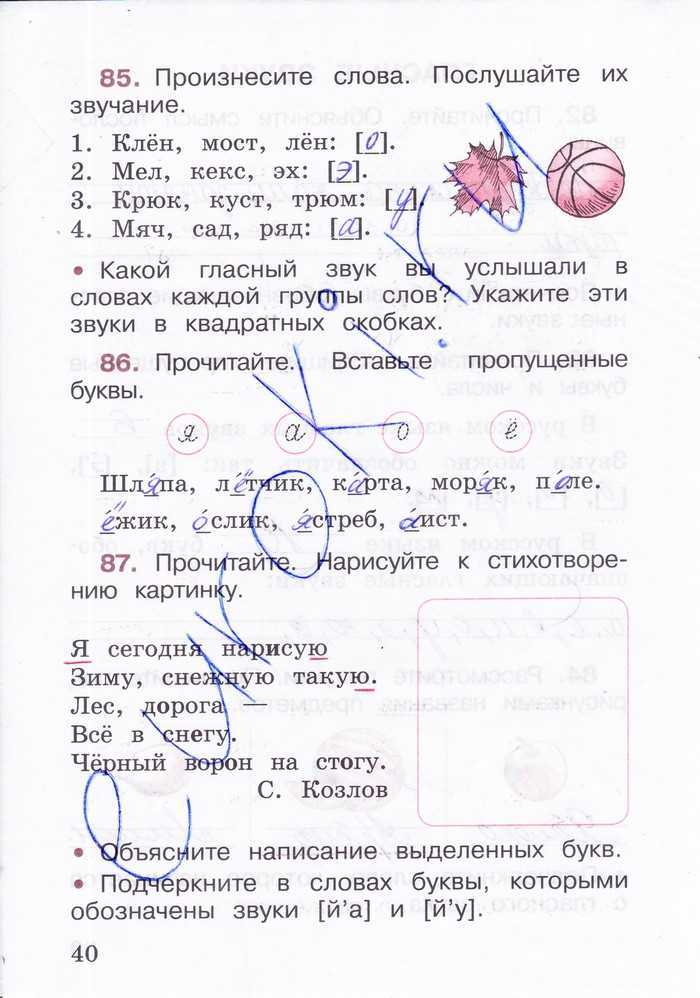 85. Произнесите слова. Послушайте их
звучание.
1. Клён, мост, лён: [о].
2. Мел, кекс, эх: [э].
3. Крюк, куст, трюм: [у].
4. Мяч, сад, ряд: [а].
• Какой гласный звук вы услышали в
словах каждой группы слов? Укажите эти
звуки в квадратных скобках.
86. Прочитайте. Вставьте пропущенные
буквы.
я а о ё
Шляпа, лётчик, карта, моряк, поле.
ёжик, ослик, ястреб, аист.
87. Прочитайте. Нарисуйте к стихотворе-
нию картинку.
Я сегодня нарисую
Зиму, снежную такую.
Лес, дорога —
Всё в снегу.
Чёрный ворон на стогу.
С. Козлов
• Объясните написание выделенных букв.
• Подчеркните в словах буквы, которыми
обозначены звуки [й’а] и [й’у].
40